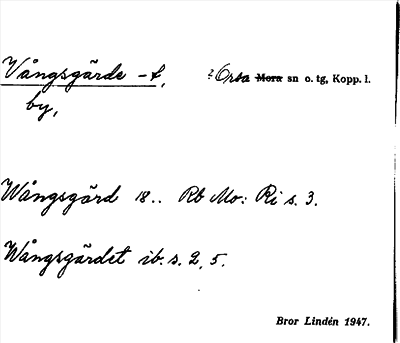 Vångsgärde -t, ? Orsa Mora sn o. tg, Kopp. l.
by,
Wångsgärd 18.. Rb Mo: Ri s. 3.
Wångsgärdet ib. s. 2, 5.
Bror Lindén 1947.